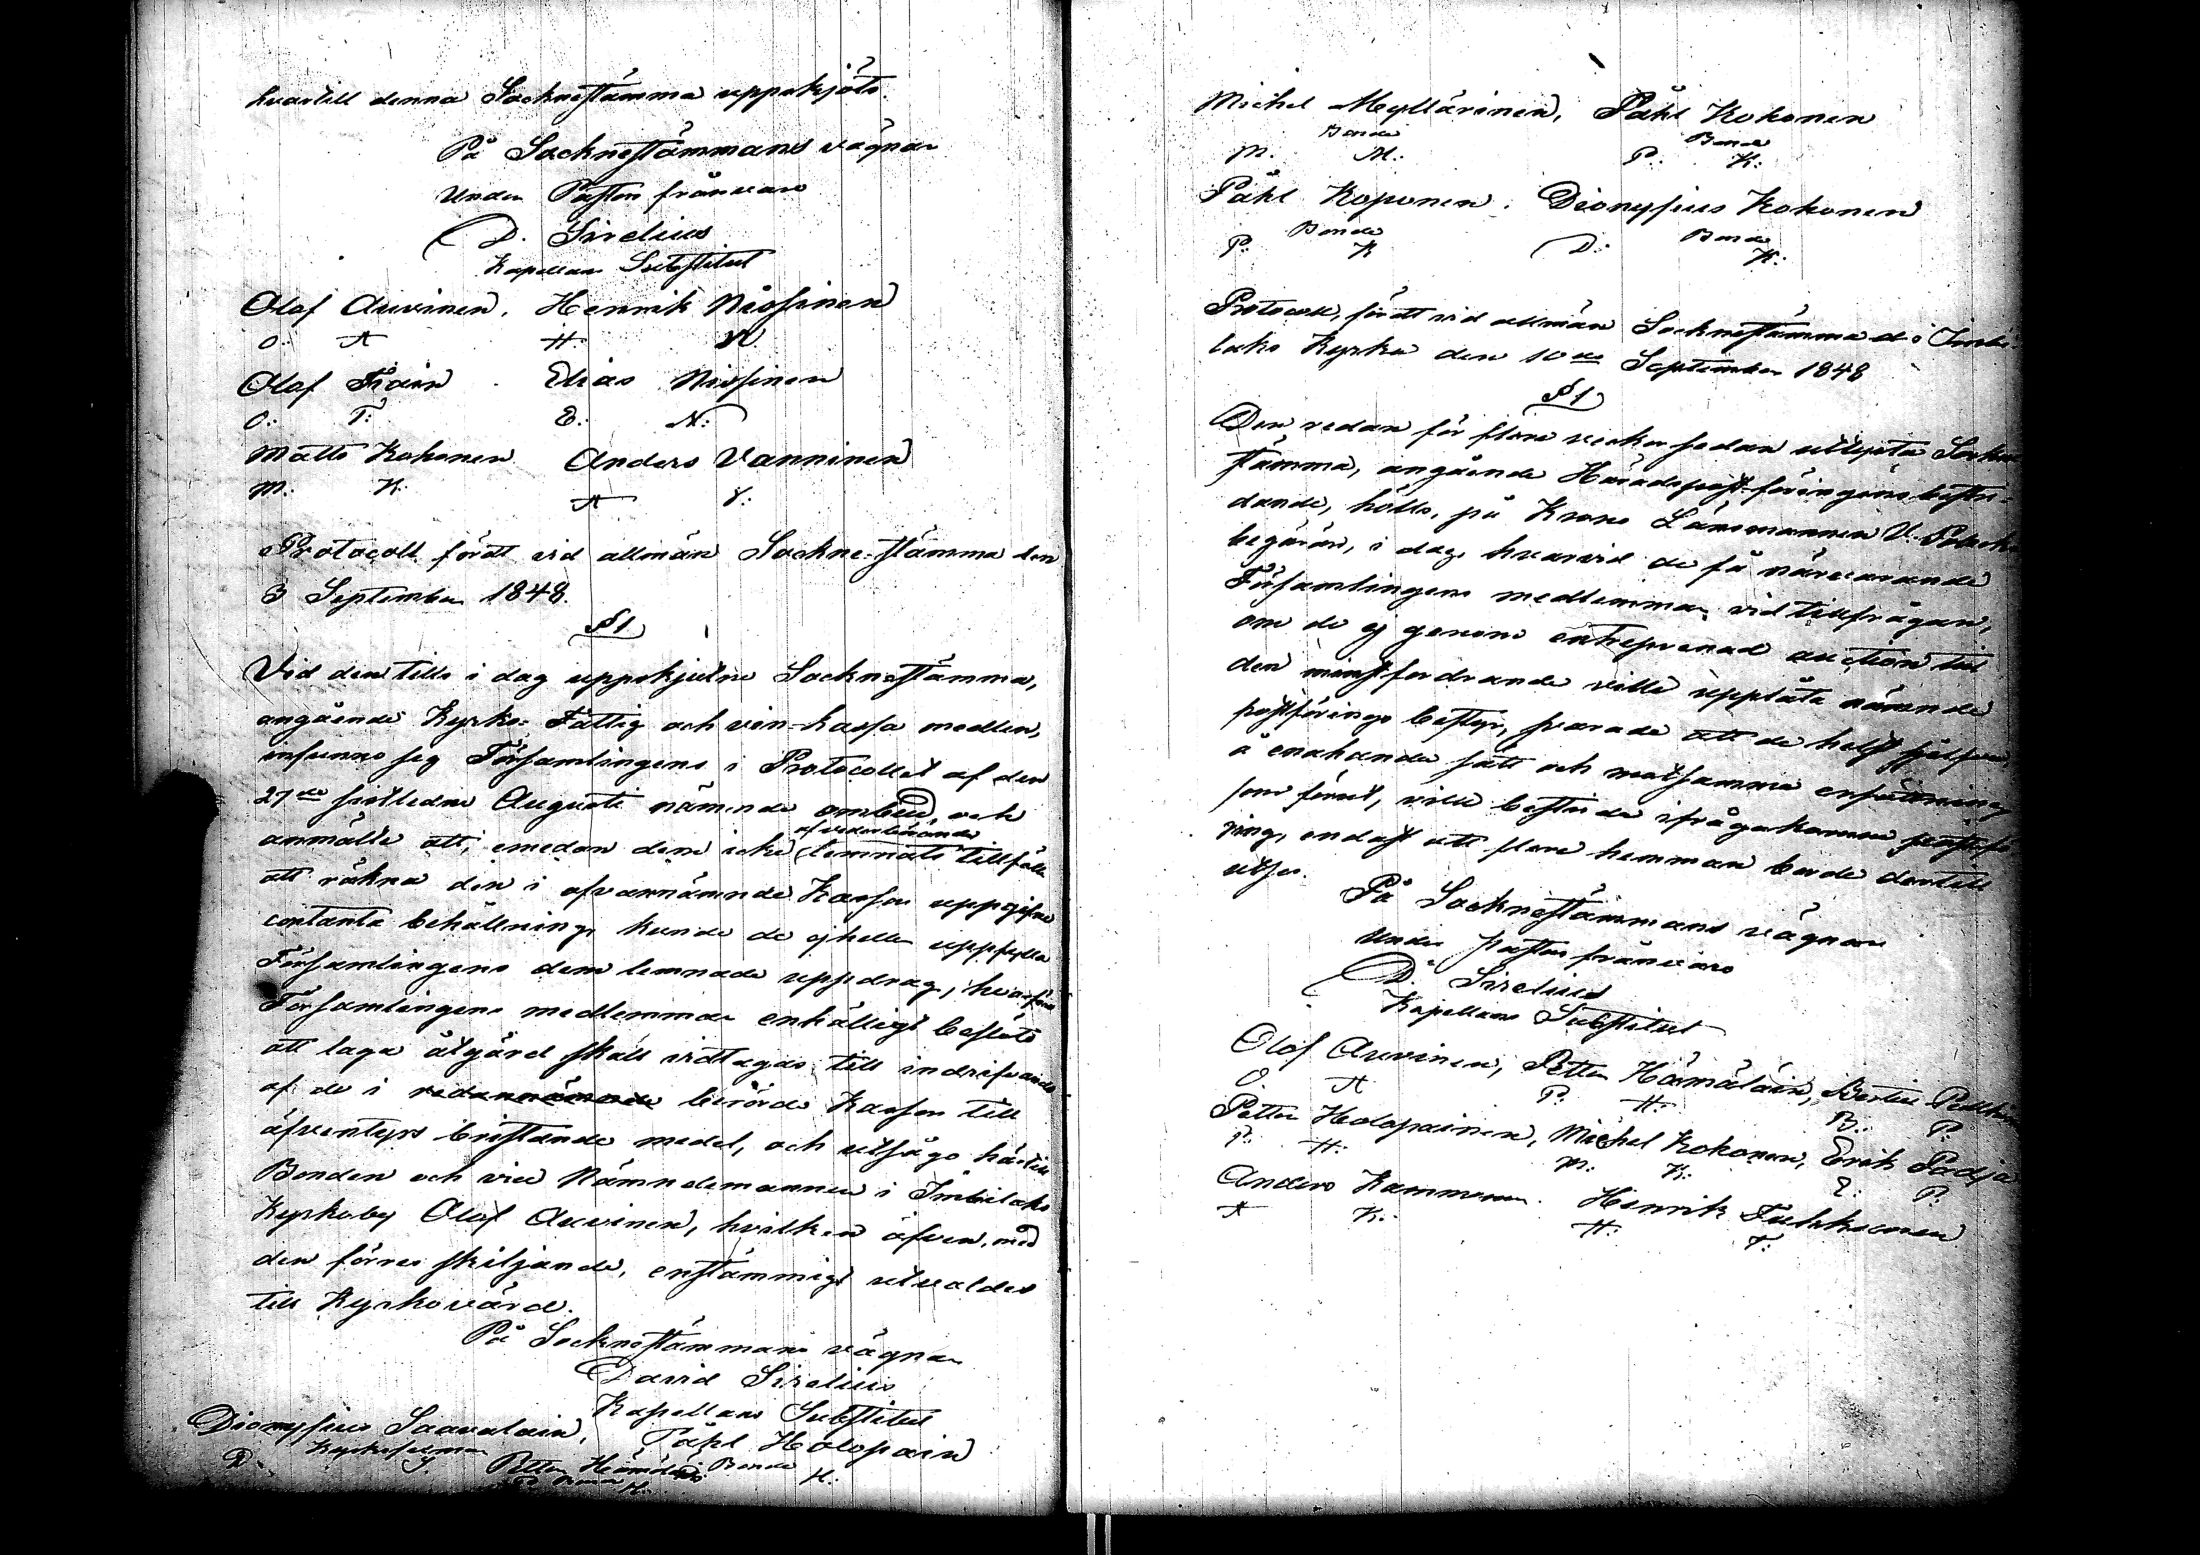 hvartill denna Socknestämma uppskjöts.
På Socknestämmans vägnar
Under Pastors frånvaro
D. Sirelius
Kapellans Substitut
Olof Auvinen. Henrik Nissinen
O: A H: N.
Olof Tiain . Elias Nissinen
O: T: E: N:
Matts Kokonen Anders Vanninen
M: K: A V:
Protocoll fördt vid allmän Sockne-stämma den
3 September 1848.
§ 1
Vid den tills i dag uppskjutne Socknestämma,
angående Kyrko- Fattig och vin-kassa medlen,
infunno sig Församlingens i Protocollet af den
27de sistledne Augusti nämnde ombud, och
anmälte att, emedan dem icke lemnats tillfälle
af vederbörande
att räkna den i ofvannämnde Kassor uppgifne
contanta behållning, kunde de ej heller uppfylla
Församlingens dem lemnade uppdrag, hvarföre
Församlingens medlemmar enhälligt beslöto
att laga åtgärd skall vidtagas till indrifvande
af de i redannämnde berörde Kassor till
äfventyrs bristande medel, och utsågo härtill
Bonden och vice Nämndemannen i Imbilaks
Kyrkoby Olof Auvinen, hvilken äfven, med
den förres skiljande, enstämmigt utvaldes
till Kyrkovärd.
På Socknestämmans vägnar
David Sirelius
Kapellans Substitut
Dionysius Saavalain, Påhl Holopain
D. Bonde H:
Petter Hämäläin
P Bonde H:
Michel Myllärinen, Påhl Kokonen
Bonde Bonde
M. M: P: K:
Påhl Koponen. Dionysius Kokonen
Bonde Bonde
P: K D: K:
Protocoll, fördt vid allmän Socknestämma i Imbi-
laks Kyrka den 10de September 1848
§ 1
Den redan för flere veckor sedan utlysta Sockne
stämma, angående Häradspost-föringens bestri-
dande, hölls, på Krono Länsmannen V.
begäran, i dag, hvarvid de få närvarande
Församlingens medlemmar vid tillfrågan,
om de ej genom entreprenad auction till
den minstfordrande ville upplåta nämnde
postförings bestyr, svarade att de helst sjelfve
å enahanda sätt och mot samma ersättning
som förut, ville bestrida ifrågakomne postfö
ring, endast att flere hemman borde dertill
utses.
På Socknestämmans vägnar
Under Pastors frånvaro
D. Sirelius
Kapellans Substitut
Olof Auvinen, Petter Hämäläin, Bertil
O. A P. H. B: P:
Petter Holopainen, Michel Kokonen, Erik
P: H: M: K: E: P:
Anders Henrik
A K: H: T: